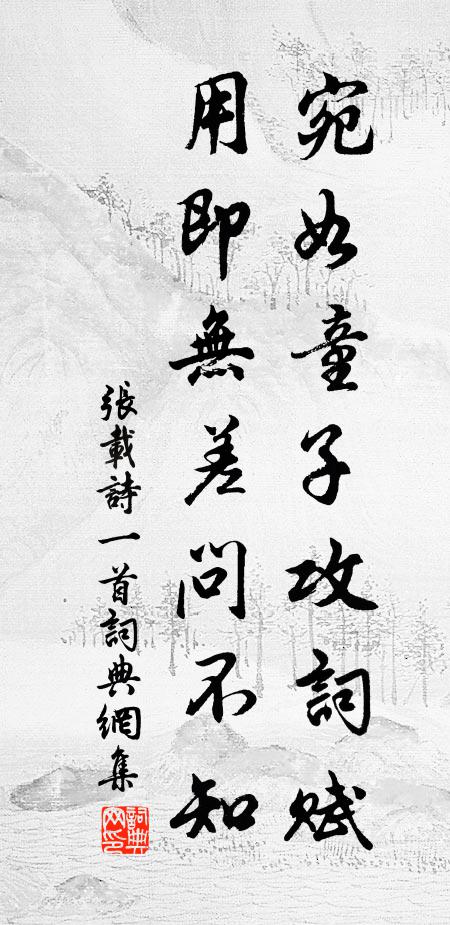 宛如童子攻詞賦
用即無差問不知
張載詩一首詞典網集
詞典网印